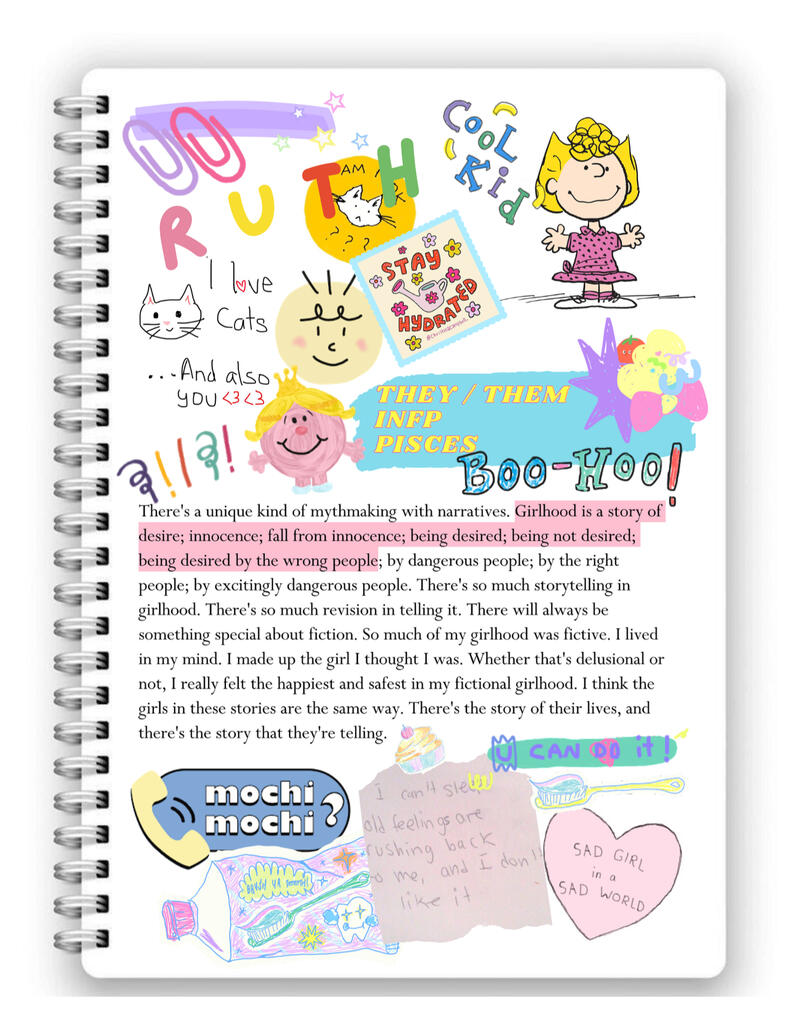 COOL
Kid
RUTH
AM I
K
? ? ?
I love
Cats
...And also
you <3 <3
STAY
HYDRATED
THEY / THEM
INFP
PISCES
BOO-HOO!
There's a unique kind of mythmaking with narratives. Girlhood is a story of
desire; innocence; fall from innocence; being desired; being not desired;
being desired by the wrong people; by dangerous people; by the right
people; by excitingly dangerous people. There's so much storytelling in
girlhood. There's so much revision in telling it. There will always be
something special about fiction. So much of my girlhood was fictive. I lived
in my mind. I made up the girl I thought I was. Whether that's delusional or
not, I really felt the happiest and safest in my fictional girlhood. I think the
girls in these stories are the same way. There's the story of their lives, and
there's the story that they're telling.
U CAN DO it!
mochi
mochi?
I can't slee
old feelings are
rushing back
to me, and I don't
like it
SAD GIRL
in a
SAD WORLD